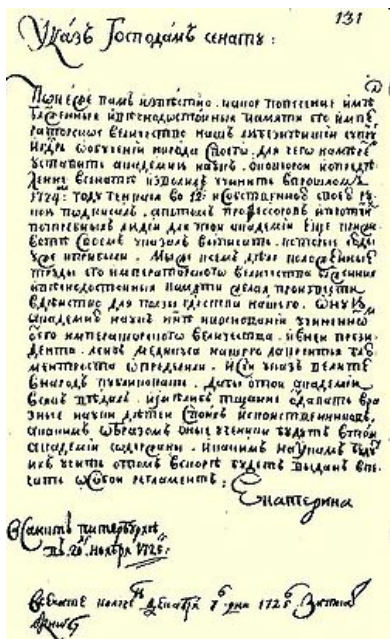 131
Указъ Господамъ сенату:
Понеже вамъ извѣстно, какое попечение имѣ
блаженныя и вѣчнодостойныя памяти его импе
раторское величество нашъ любезнѣйший
о обучении народа своего, для чего намѣре
уставить академию наукъ, о которой и опредѣ
ление в сенатѣ изволилъ учинить в прошломъ
1724м году генваря въ 22 и собственною своею ру
кою подписалъ, а притомъ профессоровъ и протчи
потребныхъ людей для этой академии еще при жи
вотѣ своемъ указалъ выписать, которые
уже прибыли. Мы по всемъ дѣле положенные
труды его императорского величества блаженныя
и вѣчнодостойныя памяти желая произвесть
в дѣйство для ползы государства нашего, ону
академию наукъ
его императорского величества, и в ней прези
дента, лейбъ медикуса нашего лаврентья
ментроста опредѣлили. И сей указъ велите
в народъ публиковать, дабы о той академии
всякъ вѣдалъ, и имѣлибъ тщание отдавать в ра
зные науки дѣтей своихъ и свойственниковъ,
а какимъ образомъ оные ученики будутъ в той
академии содержаны, и какимъ наукамъ буду
ихъ учить о томъ вскорѣ будетъ выданъ в пе
чать особой регламентъ:
Екатерина
В Санктъ питербурхѣ
въ 20 ноября 1725:
декабря 7 дня 1725